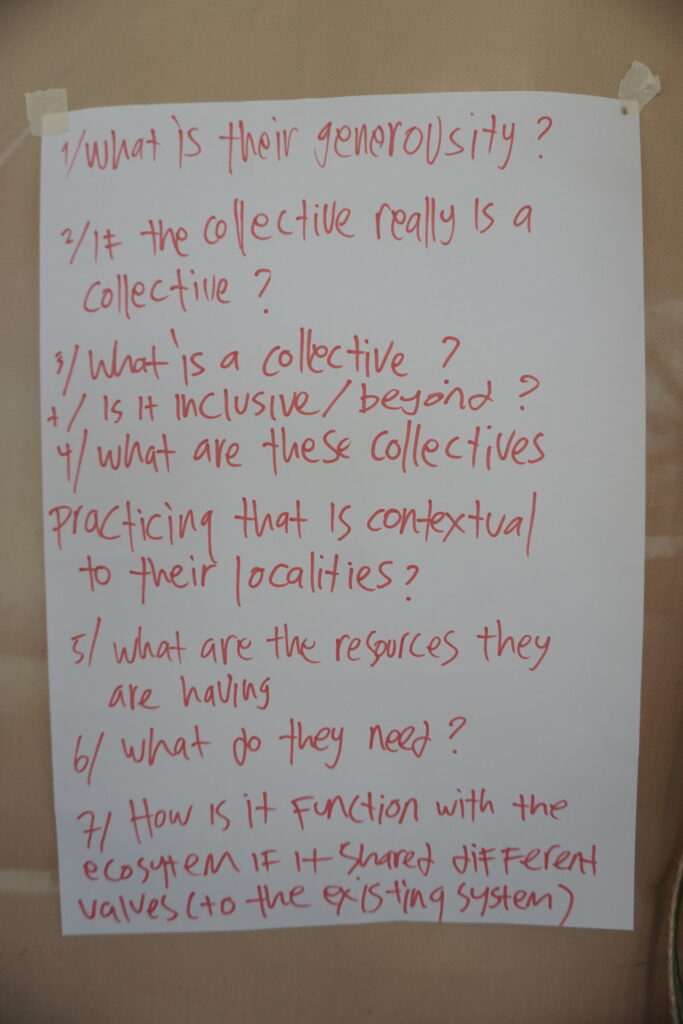 1/ what is their generousity ?
2/ If the collective really is a
collective ?
3/ what is a collective ?
+/ Is it inclusive/beyond ?
4/ what are these collectives
practicing that is contextual
to their localities?
5/ what are the resources they
are having
6/ what do they need ?
7/ How is it Function with the
ecosytem IF it shared diFFerent
values (to the existing system)